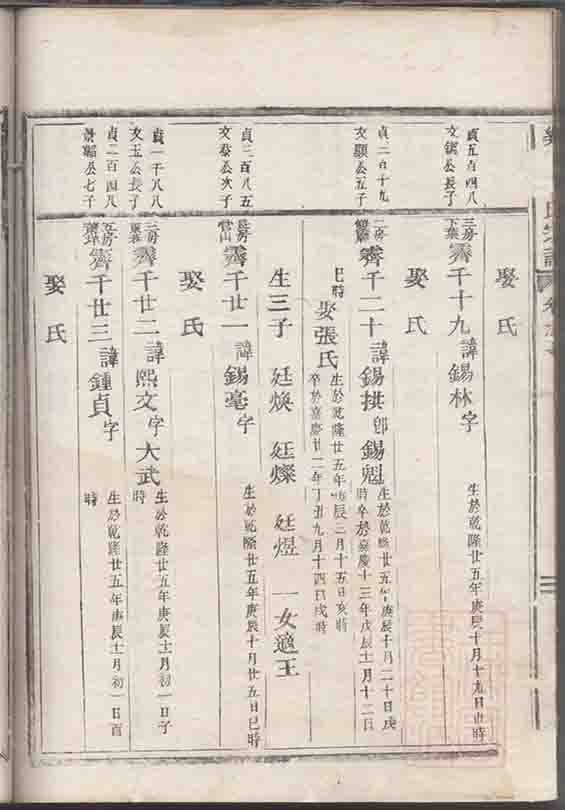 氏宗譜
娶氏
貞五百四八
文鑌公長子
三房
下葉
霽千十九諱錫林字
生於乾隆廿五年庚辰十月十九日丑時
娶氏
貞三百十九
文顯公五子
二房
霽千二十諱錫拱卽錫魁
生於乾隆廿五年庚辰十月二十日戌
時卒於嘉慶十三年戊辰十一月十二日
巳時
娶張氏
生於乾隆廿五年庚辰三月十五日亥時
卒於嘉慶廿二年丁丑九月十四日戌時
生三子 廷煥 廷燦 廷煜 一女適王
貞三百八五
文泰公次子
長房
霽千廿一諱錫毫字
生於乾隆廿五年庚辰十月廿五日巳時
娶氏
貞一千八八
文玉公長子
三房
霽千廿二諱熙文字大武
生於乾隆廿五年庚辰十一月初一日子
時
貞二百四八
景韜公七子
五房
霽千廿三諱鍾貞字
生於乾隆廿五年庚辰十一月初一日酉
時
娶氏